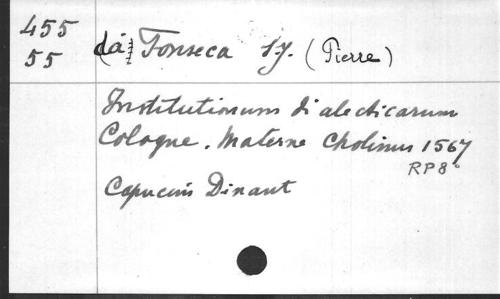 455
55
(da) Fonseca S.J. (Pierre)
Institutionum dialecticarum
Cologne. Materne Cholinus 1567
RP8°
Capucins Dinant